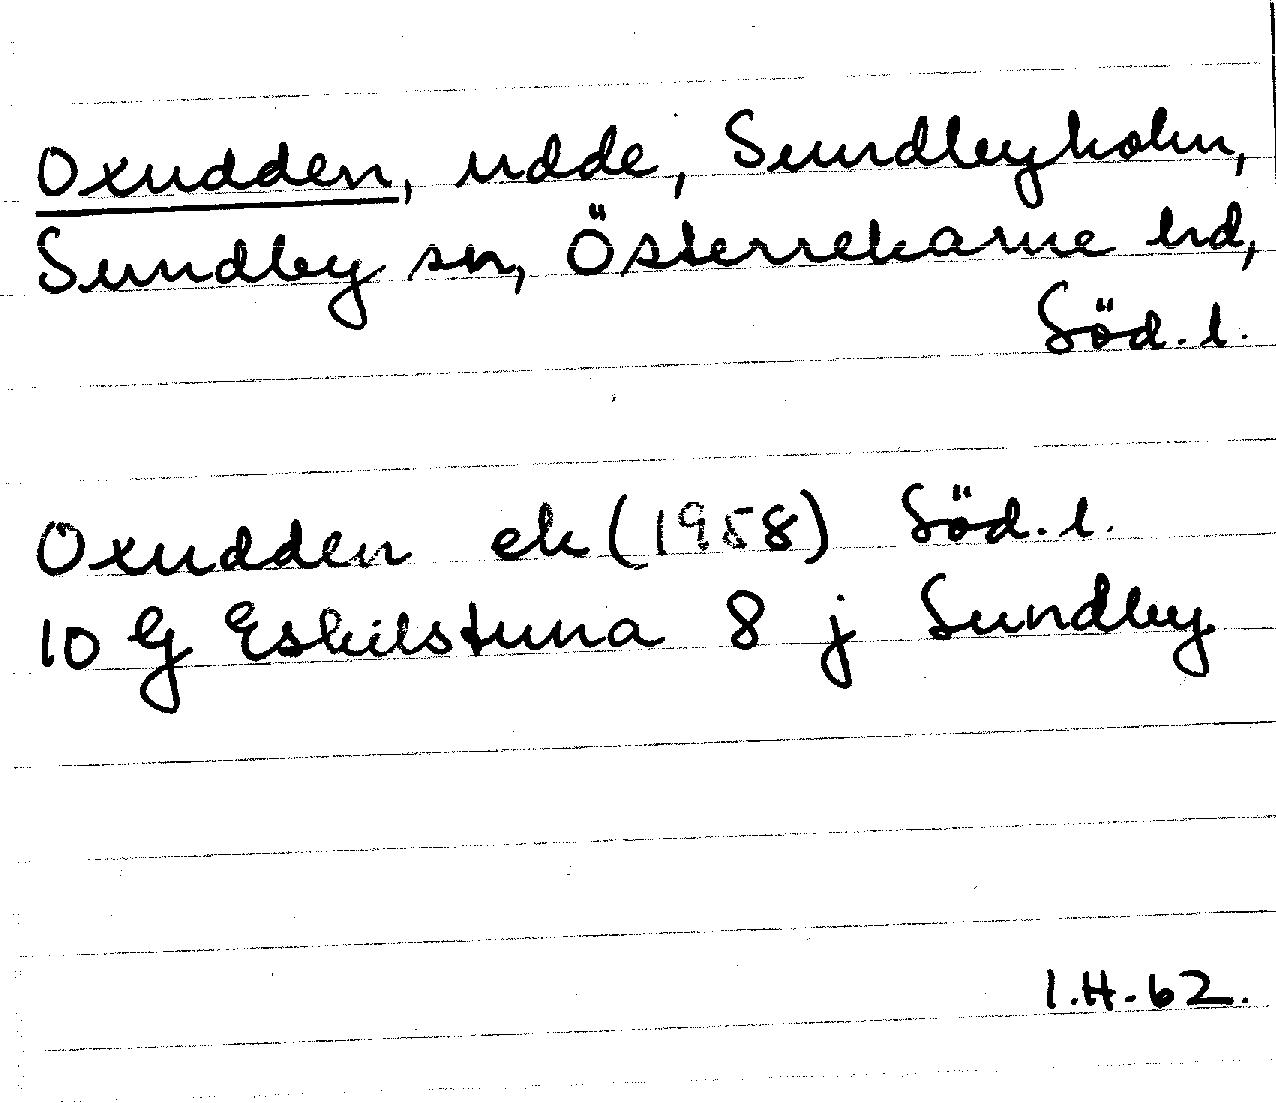 Oxudden, udde, Sundbyholm,
Sundby sn, Österrekarne hd,
Söd. l.
Oxudden ek (1958) Söd. l.
10 G Eskilstuna 8 j Sundby
I.H. 62.